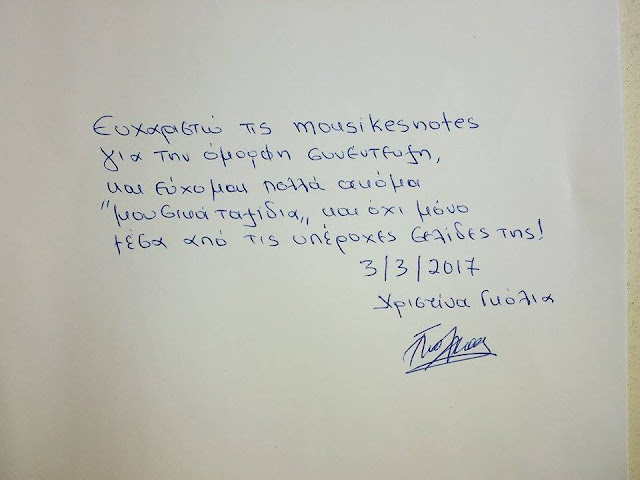 Ευχαριστώ τις mousikesnotes
για την όμορφη συνέντευξη,
και εύχομαι πολλά ακόμα
"μουσικά ταξίδια,, και όχι μόνο
μέσα από τις υπέροχες σελίδες της!
3/3/2017
Χριστίνα Γκόλια